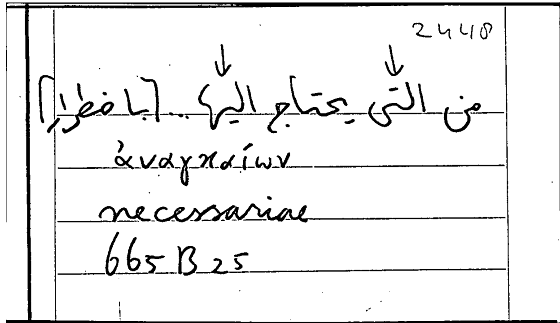 2448
من التى يحتاج اليها ... [باضطرار]
ἀναγκαίων
necessariae
665 B 25